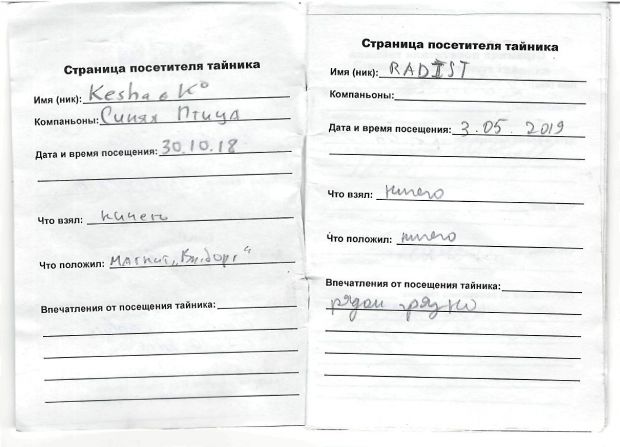 Страница посетителя тайника
Имя (ник): Kesha & Ko
Компаньоны: Синяя Птица
Дата и время посещения: 30.10.18
Что взял: ничего
Что положил: Магнит „Выборг“
Впечатления от посещения тайника:
Страница посетителя тайника
Имя (ник): RADIST
Компаньоны:
Дата и время посещения: 3.05.2019
Что взял: ничего
Что положил: ничего
Впечатления от посещения тайника:
рядом грязно